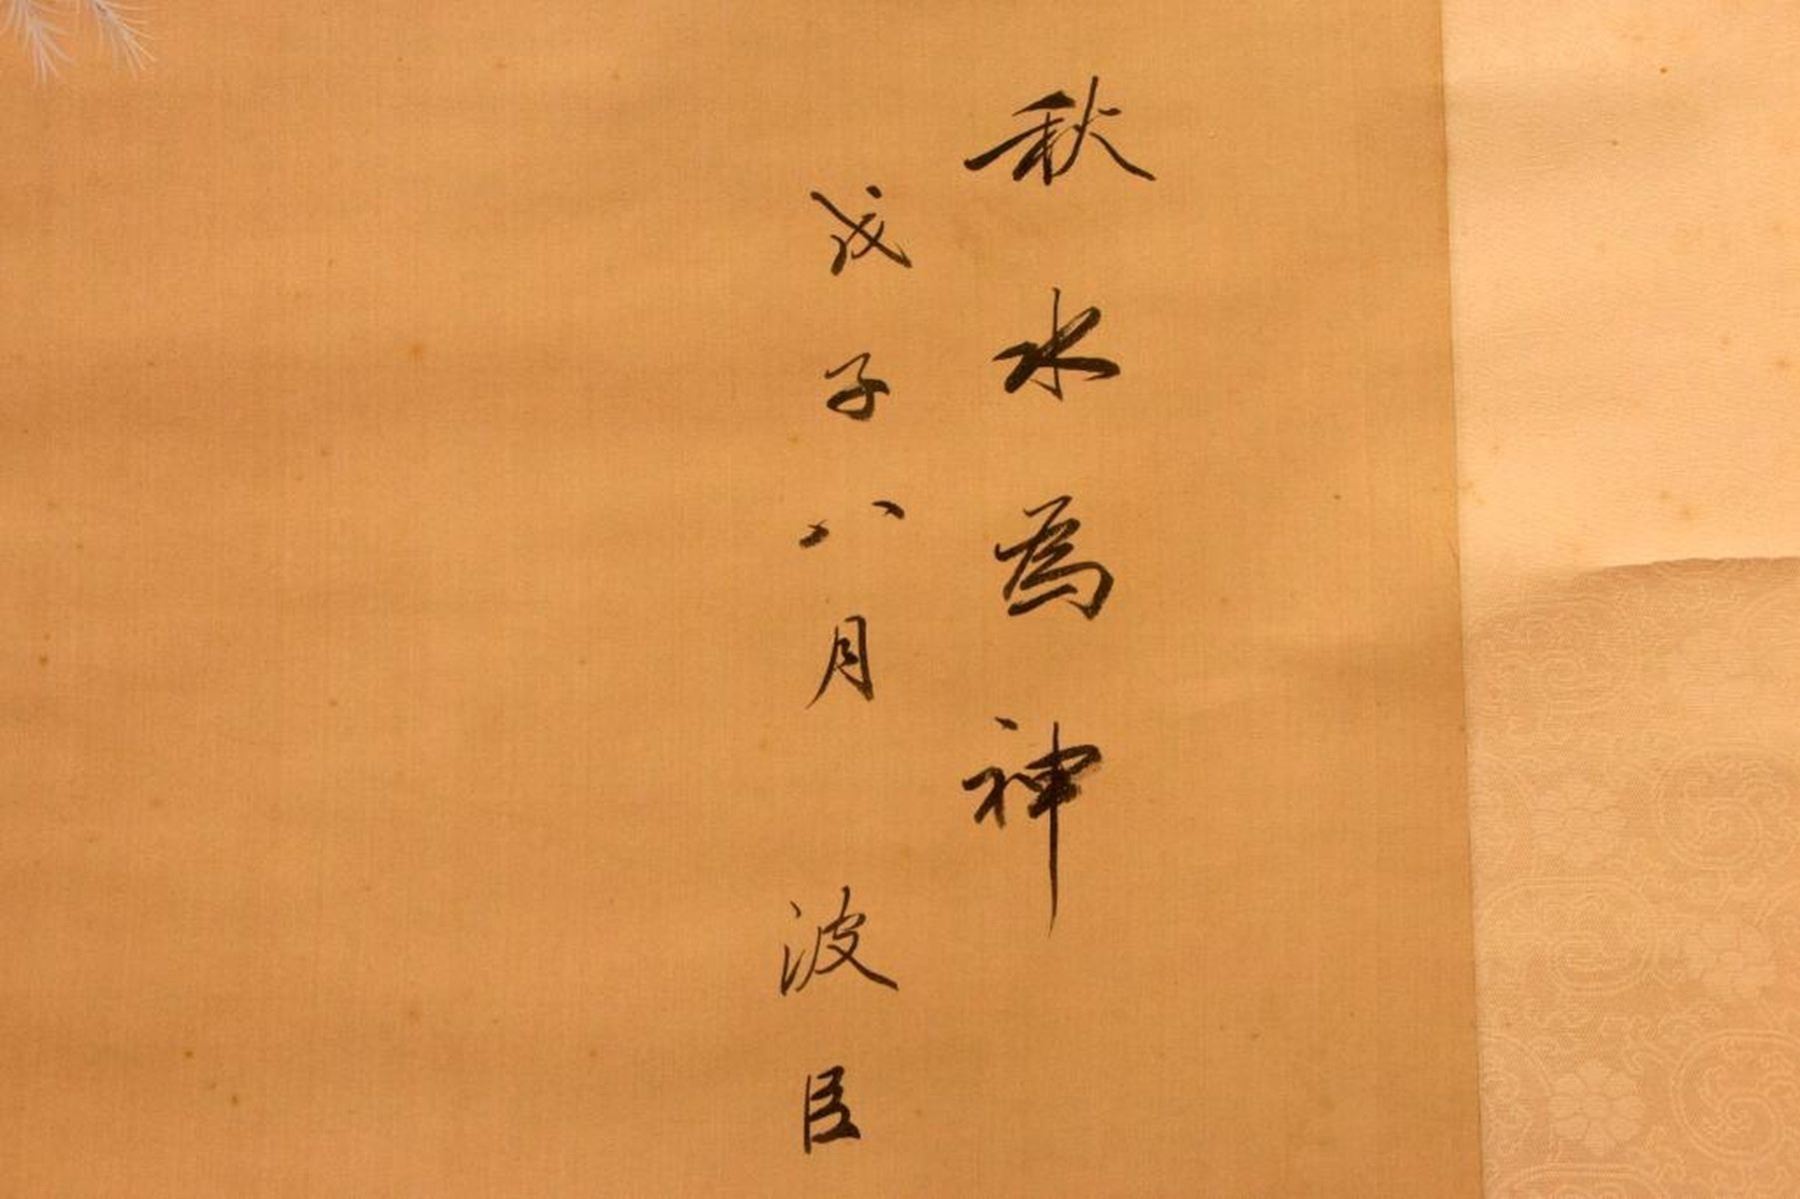 秋水為神
戊子八月 波臣